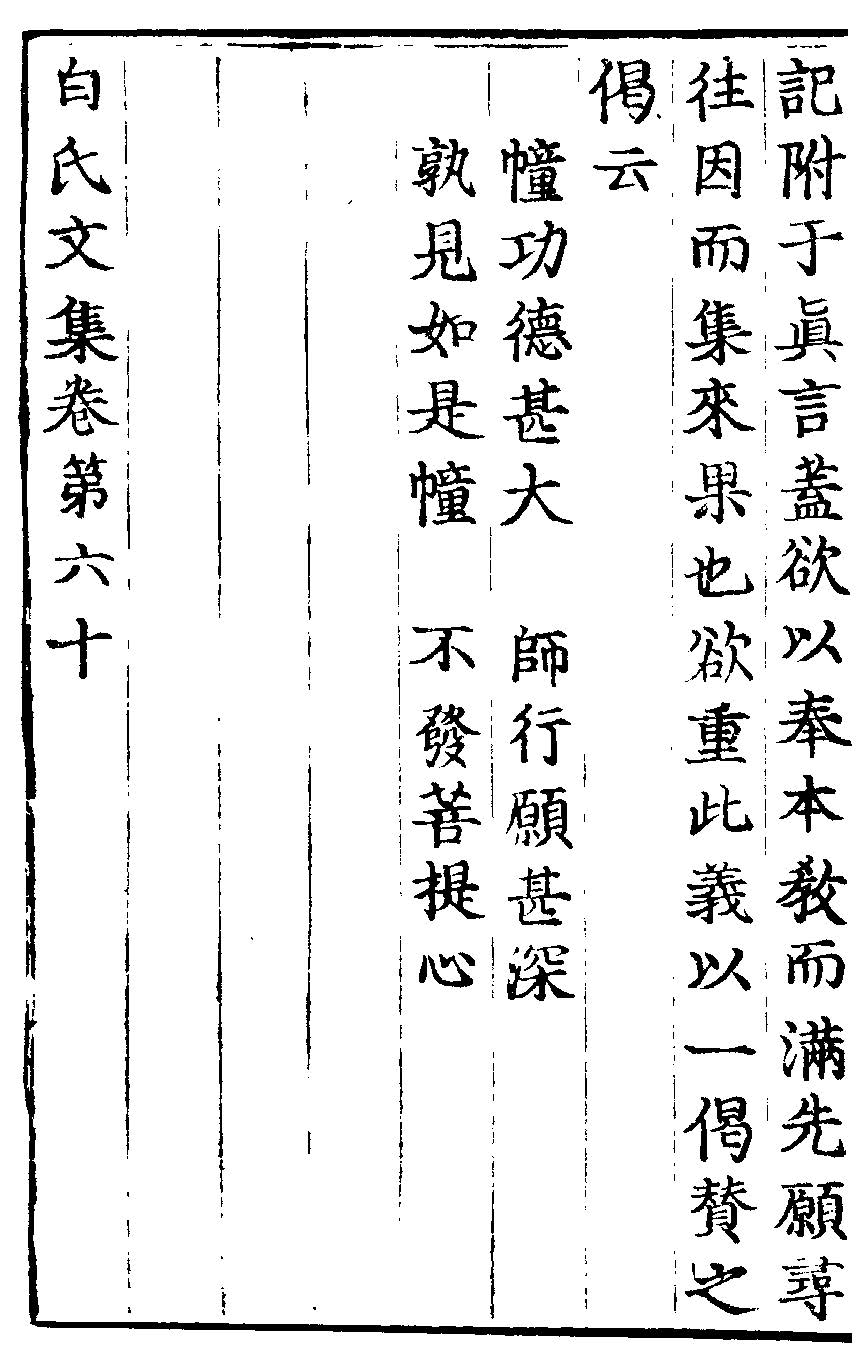 記附于眞言蓋欲以奉本教而滿先願尋
往因而集來果也欲重此義以一偈賛之
偈云
幢功德甚大　師行願甚深
孰見如是幢　不發菩提心
白氏文集卷第六十